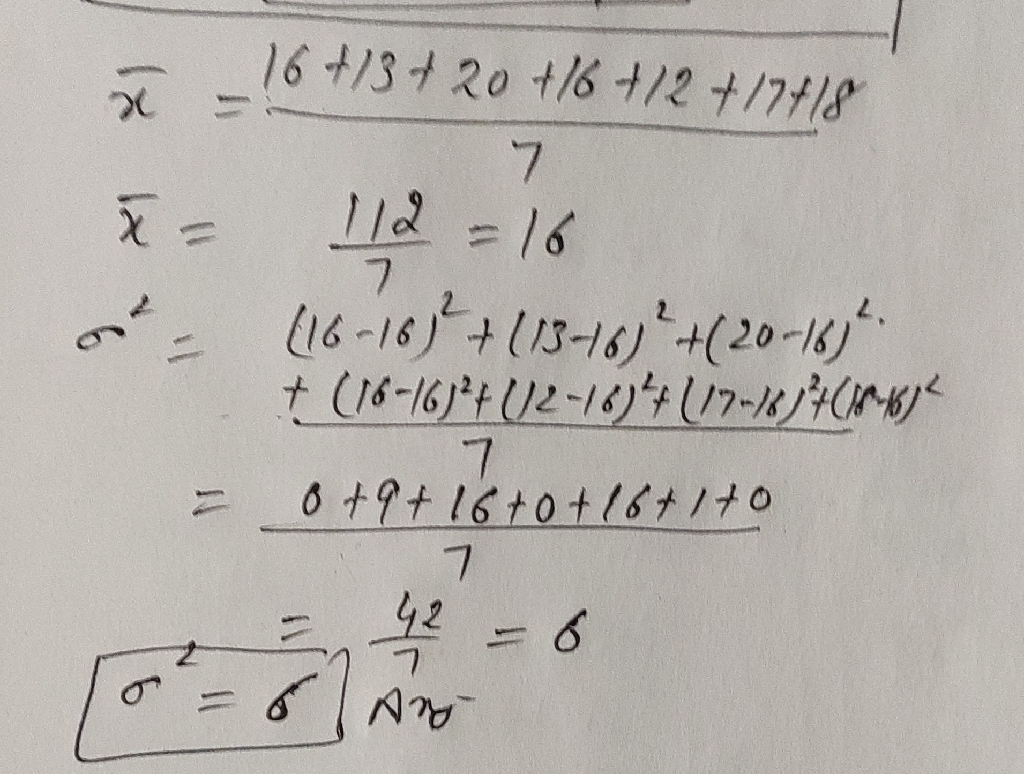 x̄ = 16 + 13 + 20 + 16 + 12 + 17 + 18
7
x̄ = 112/7 = 16
σ² = (16-16)² + (13-16)² + (20-16)²
+ (16-16)² + (12-16)² + (17-16)² + (18-16)²
7
= 0 + 9 + 16 + 0 + 16 + 1 + 0
7
= 42/7 = 6
σ² = 6 Ans